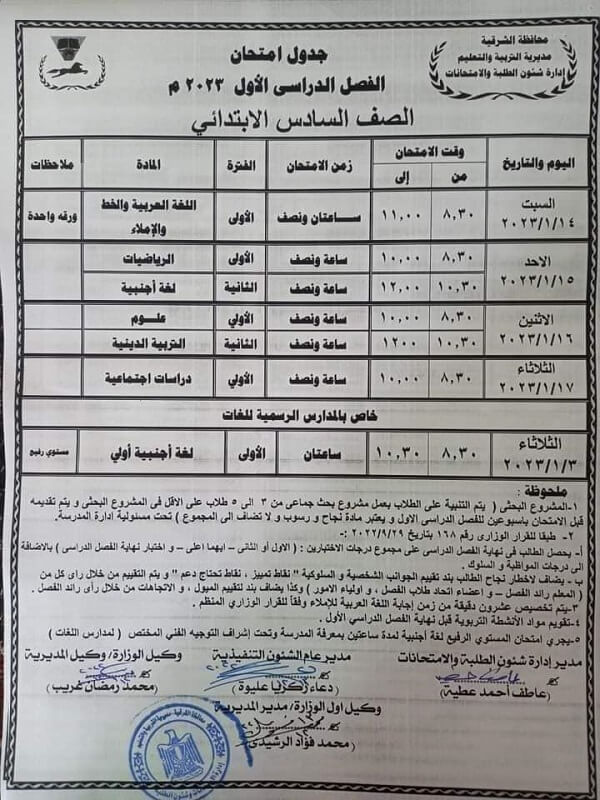 محافظة الشرقية
مديرية التربية والتعليم
إدارة شئون الطلبة والامتحانات
جدول امتحان
الفصل الدراسى الأول ٢٠٢٣ م
الصف السادس الابتدائي
اليوم والتاريخ وقت الامتحان زمن الامتحان الفترة المادة ملاحظات
من إلى
السبت ٢٠٢٣/١/١٤ ٨,٣٠ ١١,٠٠ ساعتان ونصف الأولى اللغة العربية والخط والإملاء ورقه واحدة
الاحد ٢٠٢٣/١/١٥ ٨,٣٠ ١٠,٠٠ ساعة ونصف الأولى الرياضيات
١٠,٣٠ ١٢,٠٠ ساعة ونصف الثانية لغة أجنبية
الاثنين ٢٠٢٣/١/١٦ ٨,٣٠ ١٠,٠٠ ساعة ونصف الأولي علوم
١٠,٣٠ ١٢٠٠ ساعة ونصف الثانية التربية الدينية
الثلاثاء ٢٠٢٣/١/١٧ ٨,٣٠ ١٠,٠٠ ساعة ونصف الأولي دراسات اجتماعية
خاص بالمدارس الرسمية للغات
الثلاثاء ٢٠٢٣/١/٣ ٨,٣٠ ١٠,٣٠ ساعتان الأولى لغة أجنبية أولي مستوي رفيع
ملحوظة :
١-المشروع البحثى ( يتم التنبية على الطلاب بعمل مشروع بحث جماعى من ٣ الى ٥ طلاب على الاقل فى المشروع البحثى و يتم تقديمه
قبل الامتحان باسبوعين للفصل الدراسى الاول و يعتبر مادة نجاح و رسوب و لا تضاف الى المجموع ) تحت مسئولية ادارة المدرسة.
٢- طبقا للقرار الوزارى رقم ١٦٨ بتاريخ ٢٠٢٢/٩/٢٩ :-
أ- يحصل الطالب فى نهاية الفصل الدراسى على مجموع درجات الاختبارين : ( الاول أو الثانى – ايهما اعلى – و اختبار نهاية الفصل الدراسى ) بالاضافة
الى درجات المواظبة و السلوك .
ب - يضاف لاخطار نجاح الطالب بند تقييم الجوانب الشخصية و السلوكية " نقاط تمييز ، نقاط تحتاج دعم " و يتم التقييم من خلال رأى كل من
( المعلم رائد الفصل – و اعضاء اتحاد طلاب الفصل ، و اولياء الامور ) وكذا يضاف بند لتقييم الميول ، و الاتجاهات من خلال رأى رائد الفصل .
٣-يتم تخصيص عشرون دقيقة من زمن إجابة اللغة العربية للإملاء وفقاً للقرار الوزاري المنظم .
٤-تقويم مواد الأنشطة التربوية قبل نهاية الفصل الدراسي الأول .
٥-يجري امتحان المستوي الرفيع لغة أجنبية لمدة ساعتين بمعرفة المدرسة وتحت إشراف التوجيه الفني المختص ( لمدارس اللغات )
مدير إدارة شئون الطلبة والامتحانات مدير عام الشئون التنفيذية وكيل الوزارة/ وكيل المديرية
(عاطف أحمد عطية) (دعاء زكريا عليوة) (محمد رمضان غريب)
وكيل اول الوزارة/ مدير المديرية
(محمد فؤاد الرشيدي)